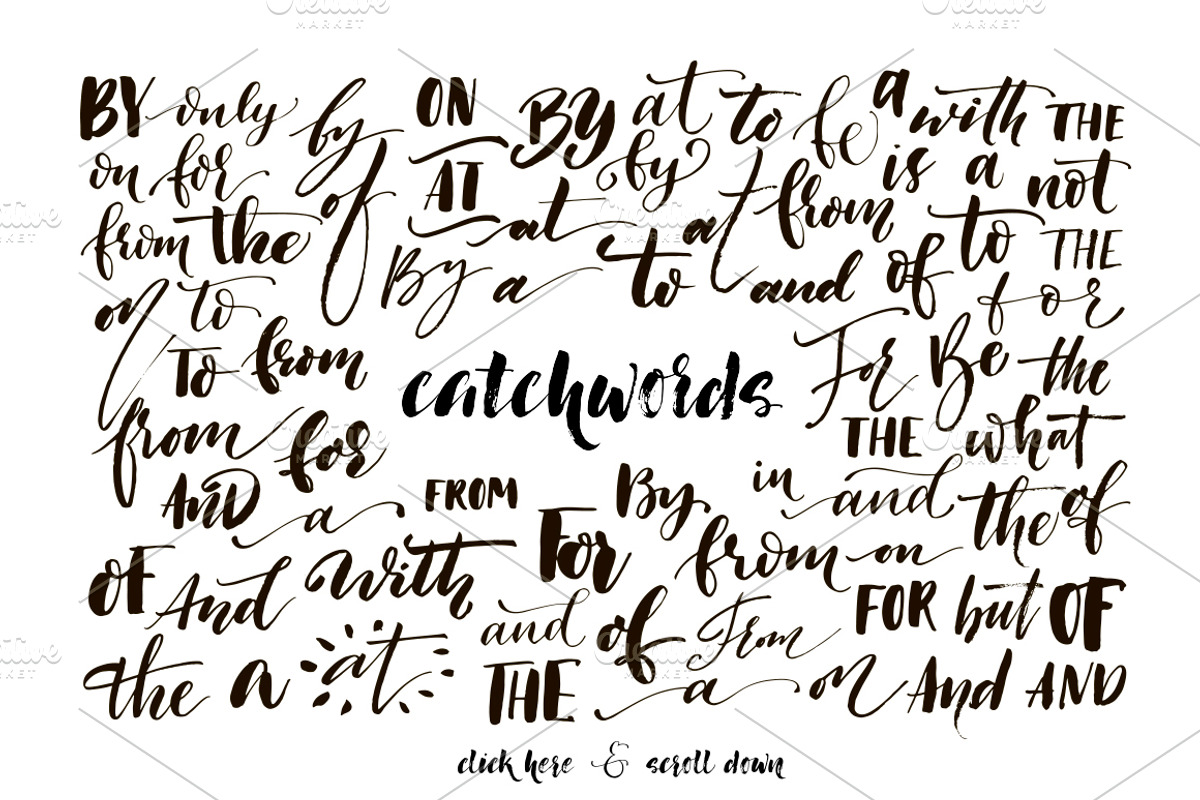 BY only by ON BY at to be a with THE
on for of AT by at from is a not
from the at to and of to THE
on to By a for
To from catchwords For Be the
from for THE what
AND a FROM By in and the of
OF And with For from on
and of From FOR but OF
the a at THE a on And AND
click here & scroll down
Creative MARKET